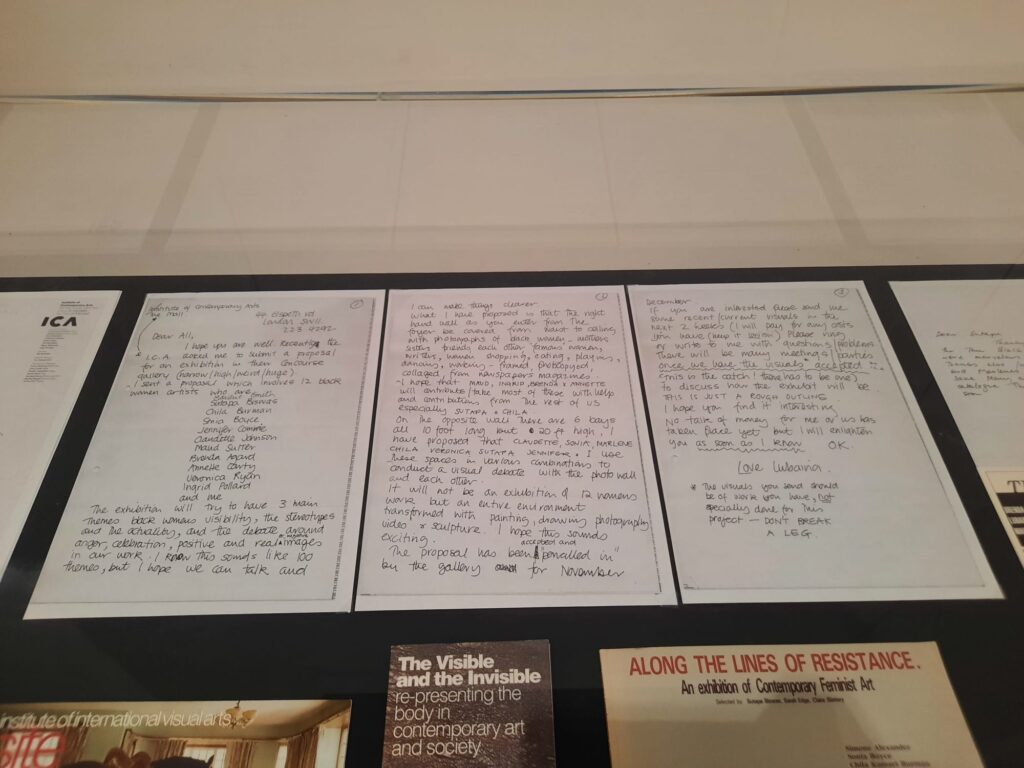 Institute of Contemporary Arts
ICA
Institute of Contemporary Arts
The Mall
①
London SW11
223 4292
Dear All,
I hope you are well. Recently the
I.C.A. asked me to submit a proposal
for an exhibition in their concourse
gallery (narrow/high/weird/huge).
I sent a proposal which involves 12 black
women artists who are
Marlene Smith
Sutapa Biswas
Chila Burman
Sonia Boyce
Jennifer Comrie
Claudette Johnson
Maud Sulter
Brenda Agard
Veronica Ryan
Ingrid Pollard
and me
The exhibition will try to have 3 main
themes black womens visibility, the stereotypes
and the actuality, and the debate around
anger, celebration, positive and real images
in our work. I know this sounds like 100
themes, but I hope we can talk and
②
I can make things clearer.
What I have proposed is that the right
hand wall as you enter from the
foyer be covered from hand to ceiling
with photographs of black women, mothers
sisters friends each other famous women,
writers, women shopping, eating, playing,
dancing, waiting - framed, photocopied,
collaged from newspapers magazines.
I hope that MAUD, INGRID, BRENDA &
will contribute / take most of these with help
and contributions from the rest of us
especially SUTAPA & CHILA.
On the opposite wall there are 6 bays
all 10 foot long but 20 ft high, I
have proposed that CLAUDETTE, SONIA, MARLENE
CHILA VERONICA SUTAPA JENNIFER & I use
these spaces in various combinations to
conduct a visual debate with the photo wall
and each other.
It will not be an exhibition of 12 womens
work but an entire environment
transformed with painting, drawing photography
video & sculpture. I hope this sounds
exciting.
accepted and
The proposal has been "pencilled in"
by the gallery for November
③
December
If you are interested please send me
some recent/current visuals in the
next 2 weeks (I will pay for any costs
you have) Please ring
or write to me with questions/problems
There will be many meetings/parties
once we have the visuals accepted
(this is the catch! there has to be one)
To discuss how the exhibit will be
THIS IS JUST A ROUGH OUTLINE
I hope you find it interesting
No talk of money for me or us has
taken place yet but I will enlighten
you as soon as I know OK.
Love Lubaina.
* The visuals you send should
be of work you have, not
specially done for this
project - DONT BREAK
A LEG.
institute of international visual arts
site
The Visible
and the Invisible
re-presenting the
body in
contemporary art
and society
ALONG THE LINES OF RESISTANCE.
An exhibition of Contemporary Feminist Art
Selected by Sutapa Biswas, Sarah Edge, Claire Slattery
Simone Alexander
Sonia Boyce
Chila Kumari Burman